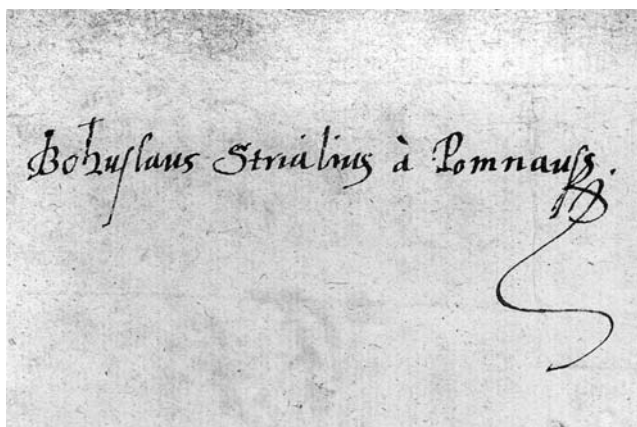 Bohuslaus Strialius à Pomnauss.